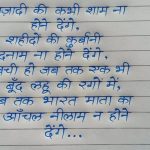 ज़ादी की कभी शाम ना
होने देंगे,
शहीदों की कुर्बानी
दनाम ना होने देंगे.
बची हो जब तक एक भी
बूंद लहू की रगो में,
ब तक भारत माता का
आँचल नीलाम न होने
देंगे...